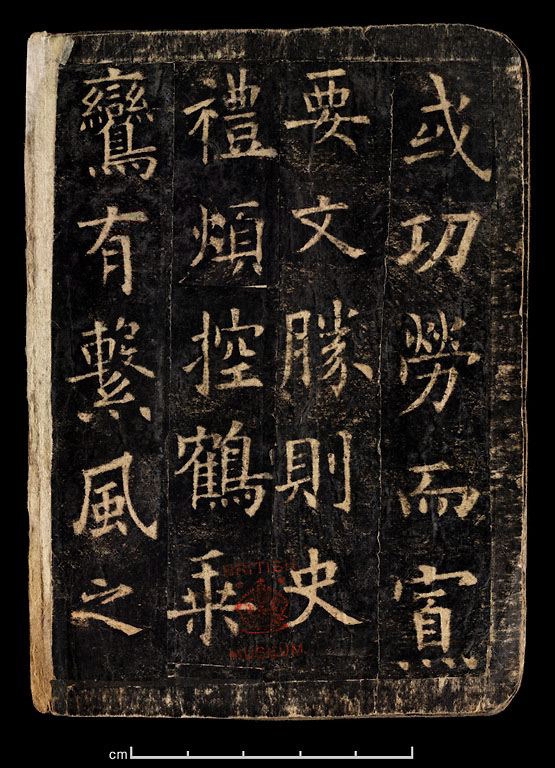 或功勞而賔
要文勝則史
禮煩控鶴乗
鸞有繫風之
BRITISH
MUSEUM
cm